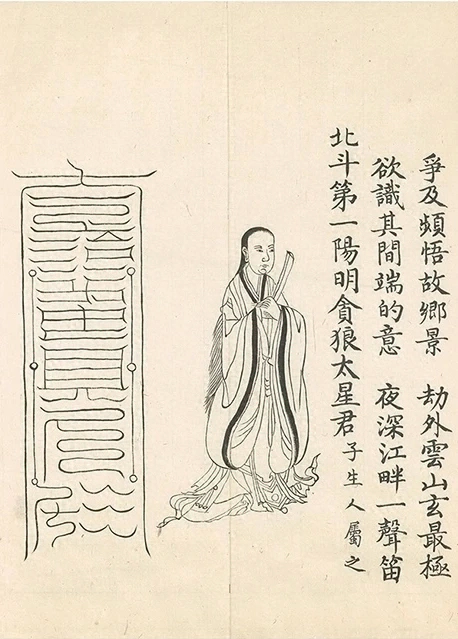 爭及頻悟故鄉景　劫外雲山玄最極
欲識其間端的意　夜深江畔一聲笛
北斗第一陽明貪狼太星君 子生人屬之